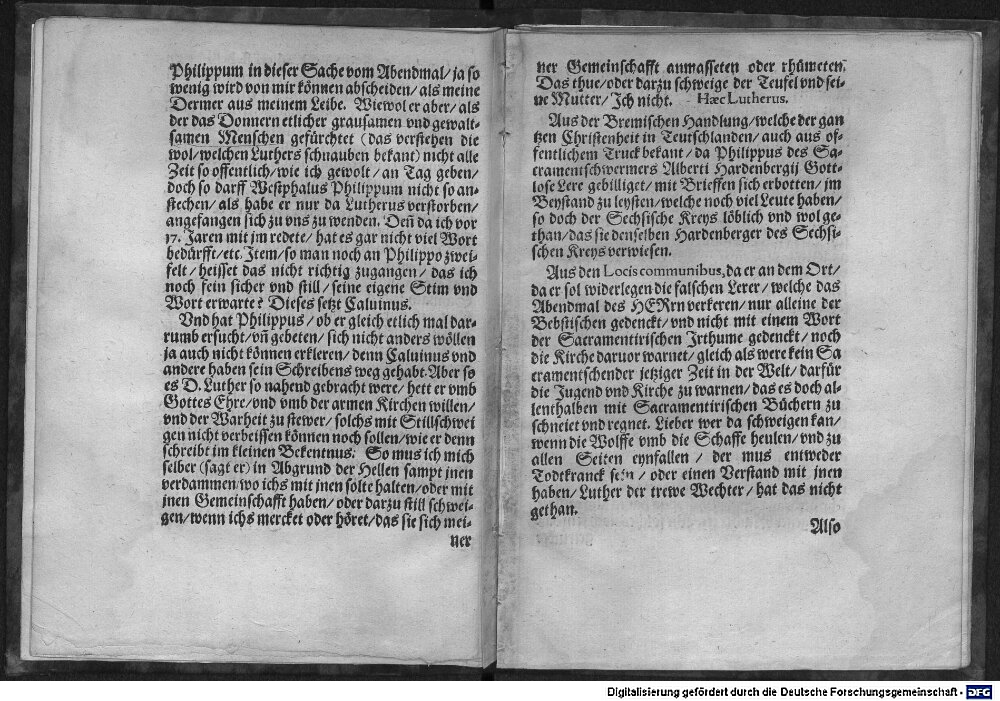 Philippum in dieser Sache vom Abendmal/ ja so
wenig wird von mir können abscheiden/ als meine
Dermer aus meinem Leibe. Wiewol er aber/ als
der das Donnern etlicher grausamen vnd gewalt-
samen Menschen gefürchtet (das verstehen die
wol/ welchen Luthers schnauben bekant) nicht alle
Zeit so offentlich/ wie ich gewolt/ an Tag geben/
doch so darff Westphalus Philippum nicht so an-
stechen/ als habe er nur da Lutherus verstorben/
angefangen sich zu vns zu wenden. Deñ da ich vor
17. Jaren mit jm redete/ hat es gar nicht viel Wort
bedürfft/ etc. Item/ so man noch an Philippo zwei-
felt/ heisset das nicht richtig zugangen/ das ich
noch fein sicher vnd still/ seine eigene Stim vnd
Wort erwarte? Dieses setzt Caluinus.
Vnd hat Philippus/ ob er gleich etlich mal dar-
rumb ersucht/ vñ gebeten/ sich nicht anders wöllen
ja auch nicht können erkleren/ denn Caluinus vnd
andere haben sein Schreibens weg gehabt. Aber so
es D. Luther so nahend gebracht were/ hett er vmb
Gottes Ehre/ vnd vmb der armen Kirchen willen/
vnd der Warheit zu stewer/ solchs mit Stillschwei
gen nicht verbeissen können noch sollen/ wie er denn
schreibt im kleinen Bekentnus: So mus ich mich
selber (sagt er) in Abgrund der Hellen sampt jnen
verdammen/ wo ichs mit jnen solte halten/ oder mit
jnen Gemeinschafft haben/ oder darzu still schwei-
gen/ wenn ichs mercket oder höret/ das sie sich mei-
ner
ner Gemeinschafft anmasseten oder rhümeten.
Das thue/ oder darzu schweige der Teufel vnd sei-
ne Mutter/ Ich nicht. Hæc Lutherus.
Aus der Bremischen Handlung/ welche der gan
tzen Christenheit in Teutschlanden/ auch aus of-
fentlichem Truck bekant/ da Philippus des Sa-
cramentschwermers Alberti Hardenbergij Gott-
lose Lere gebilliget/ mit Brieffen sich erbotten/ jm
Beystand zu leysten/ welche noch viel Leute haben/
so doch der Sechsische Kreys löblich vnd wol ge-
than/ das sie denselben Hardenberger des Sechsi-
schen Kreys verwiesen.
Aus den Locis communibus, da er an dem Ort/
da er sol widerlegen die falschen Lerer/ welche das
Abendmal des HErrn verkeren/ nur alleine der
Bebstischen gedenckt/ vnd nicht mit einem Wort
der Sacramentirischen Irthume gedenckt/ noch
die Kirche daruor warnet/ gleich als were kein Sa
cramentschender jetziger Zeit in der Welt/ darfür
die Jugend vnd Kirche zu warnen/ das es doch al-
lenthalben mit Sacramentirischen Büchern zu
schneiet vnd regnet. Lieber wer da schweigen kan/
wenn die Wolffe vmb die Schaffe heulen/ vnd zu
allen Seiten eynfallen/ der mus entweder
Todtkranck sein/ oder einen Verstand mit jnen
haben/ Luther der trewe Wechter/ hat das nicht
gethan.
Also
Digitalisierung gefördert durch die Deutsche Forschungsgemeinschaft - DFG